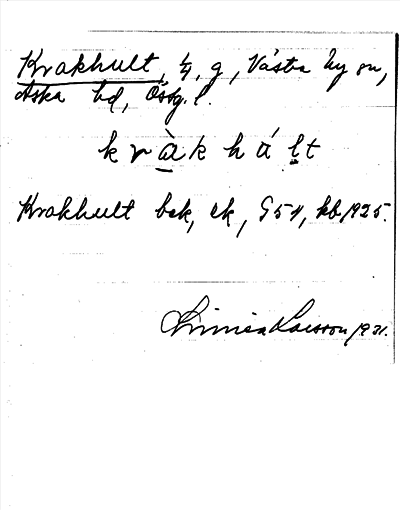 Krakhult, 1/4, g, Västra Ny sn,
Aska hd, Östg. l.
k r à k h á l t
Krakhult bek, ek, G 54, kb 1925.
Linnea Larsson 1931.